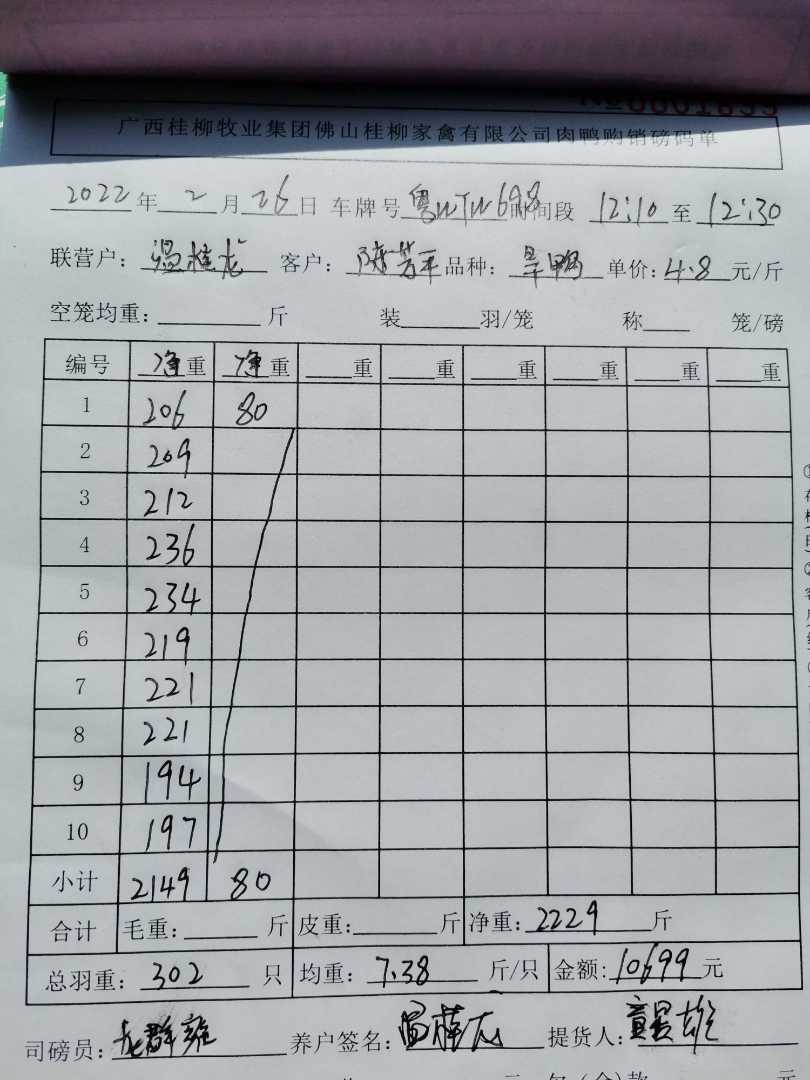 №0001899
广西桂柳牧业集团佛山桂柳家禽有限公司肉鸭购销磅码单
2022年2月26日 车牌号 粤WTW698 时间段 12:10 至 12:30
联营户：温桂龙 客户：陈芳平 品种：旱鸭 单价：4.8元/斤
空笼均重：____斤 装____羽/笼 称____笼/磅
编号 净重 净重 ____重 ____重 ____重 ____重 ____重 ____重
1 206 80
2 209
3 212
4 236
5 234
6 219
7 221
8 221
9 194
10 197
小计 2149 80
合计 毛重：____斤 皮重：____斤 净重：2229斤
总羽重：302只 均重：7.38斤/只 金额：10699元
司磅员：龙群雄 养户签名：温桂龙 提货人：